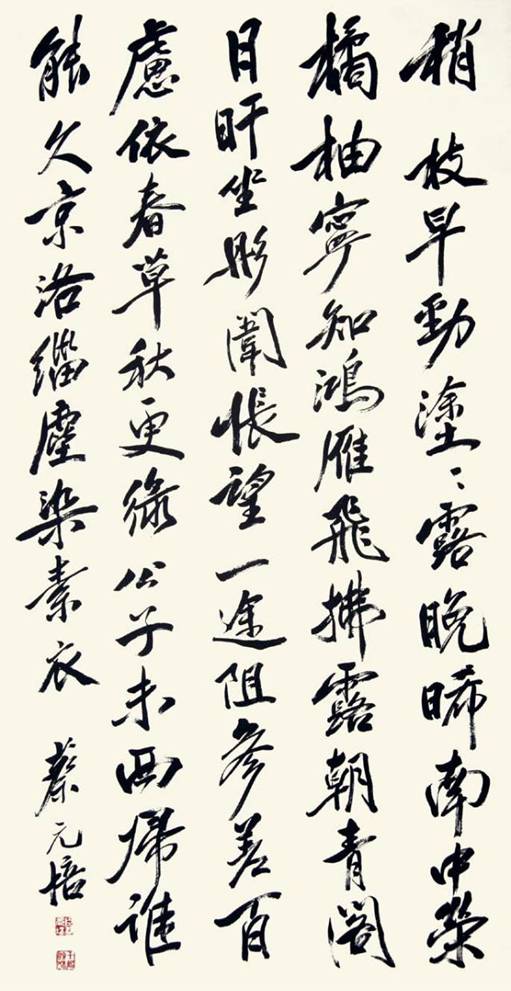 梢枝早勁塗〻露晚晞南中榮
橘柚寧知鴻雁飛拂露朝青閣
日旰坐彤闈悵望一途阻參差百
慮依春草秋更綠公子未西歸誰
能久京洛緇塵染素衣
蔡元培